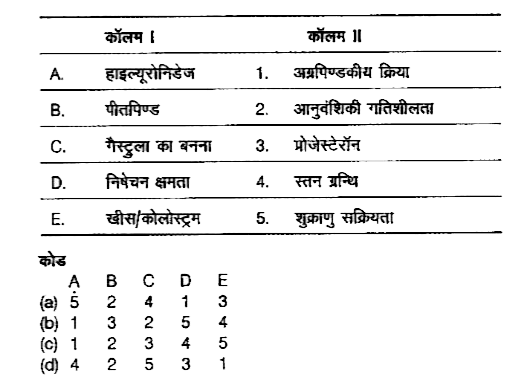 कॉलम I कॉलम II
A. हाइल्यूरोनिडेज 1. अग्रपिण्डकीय क्रिया
B. पीतपिण्ड 2. आनुवंशिकी गतिशीलता
C. गैस्ट्रुला का बनना 3. प्रोजेस्टेरॉन
D. निषेचन क्षमता 4. स्तन ग्रन्थि
E. खीस/कोलोस्ट्रम 5. शुक्राणु सक्रियता
कोड
A B C D E
(a) 5 2 4 1 3
(b) 1 3 2 5 4
(c) 1 2 3 4 5
(d) 4 2 5 3 1